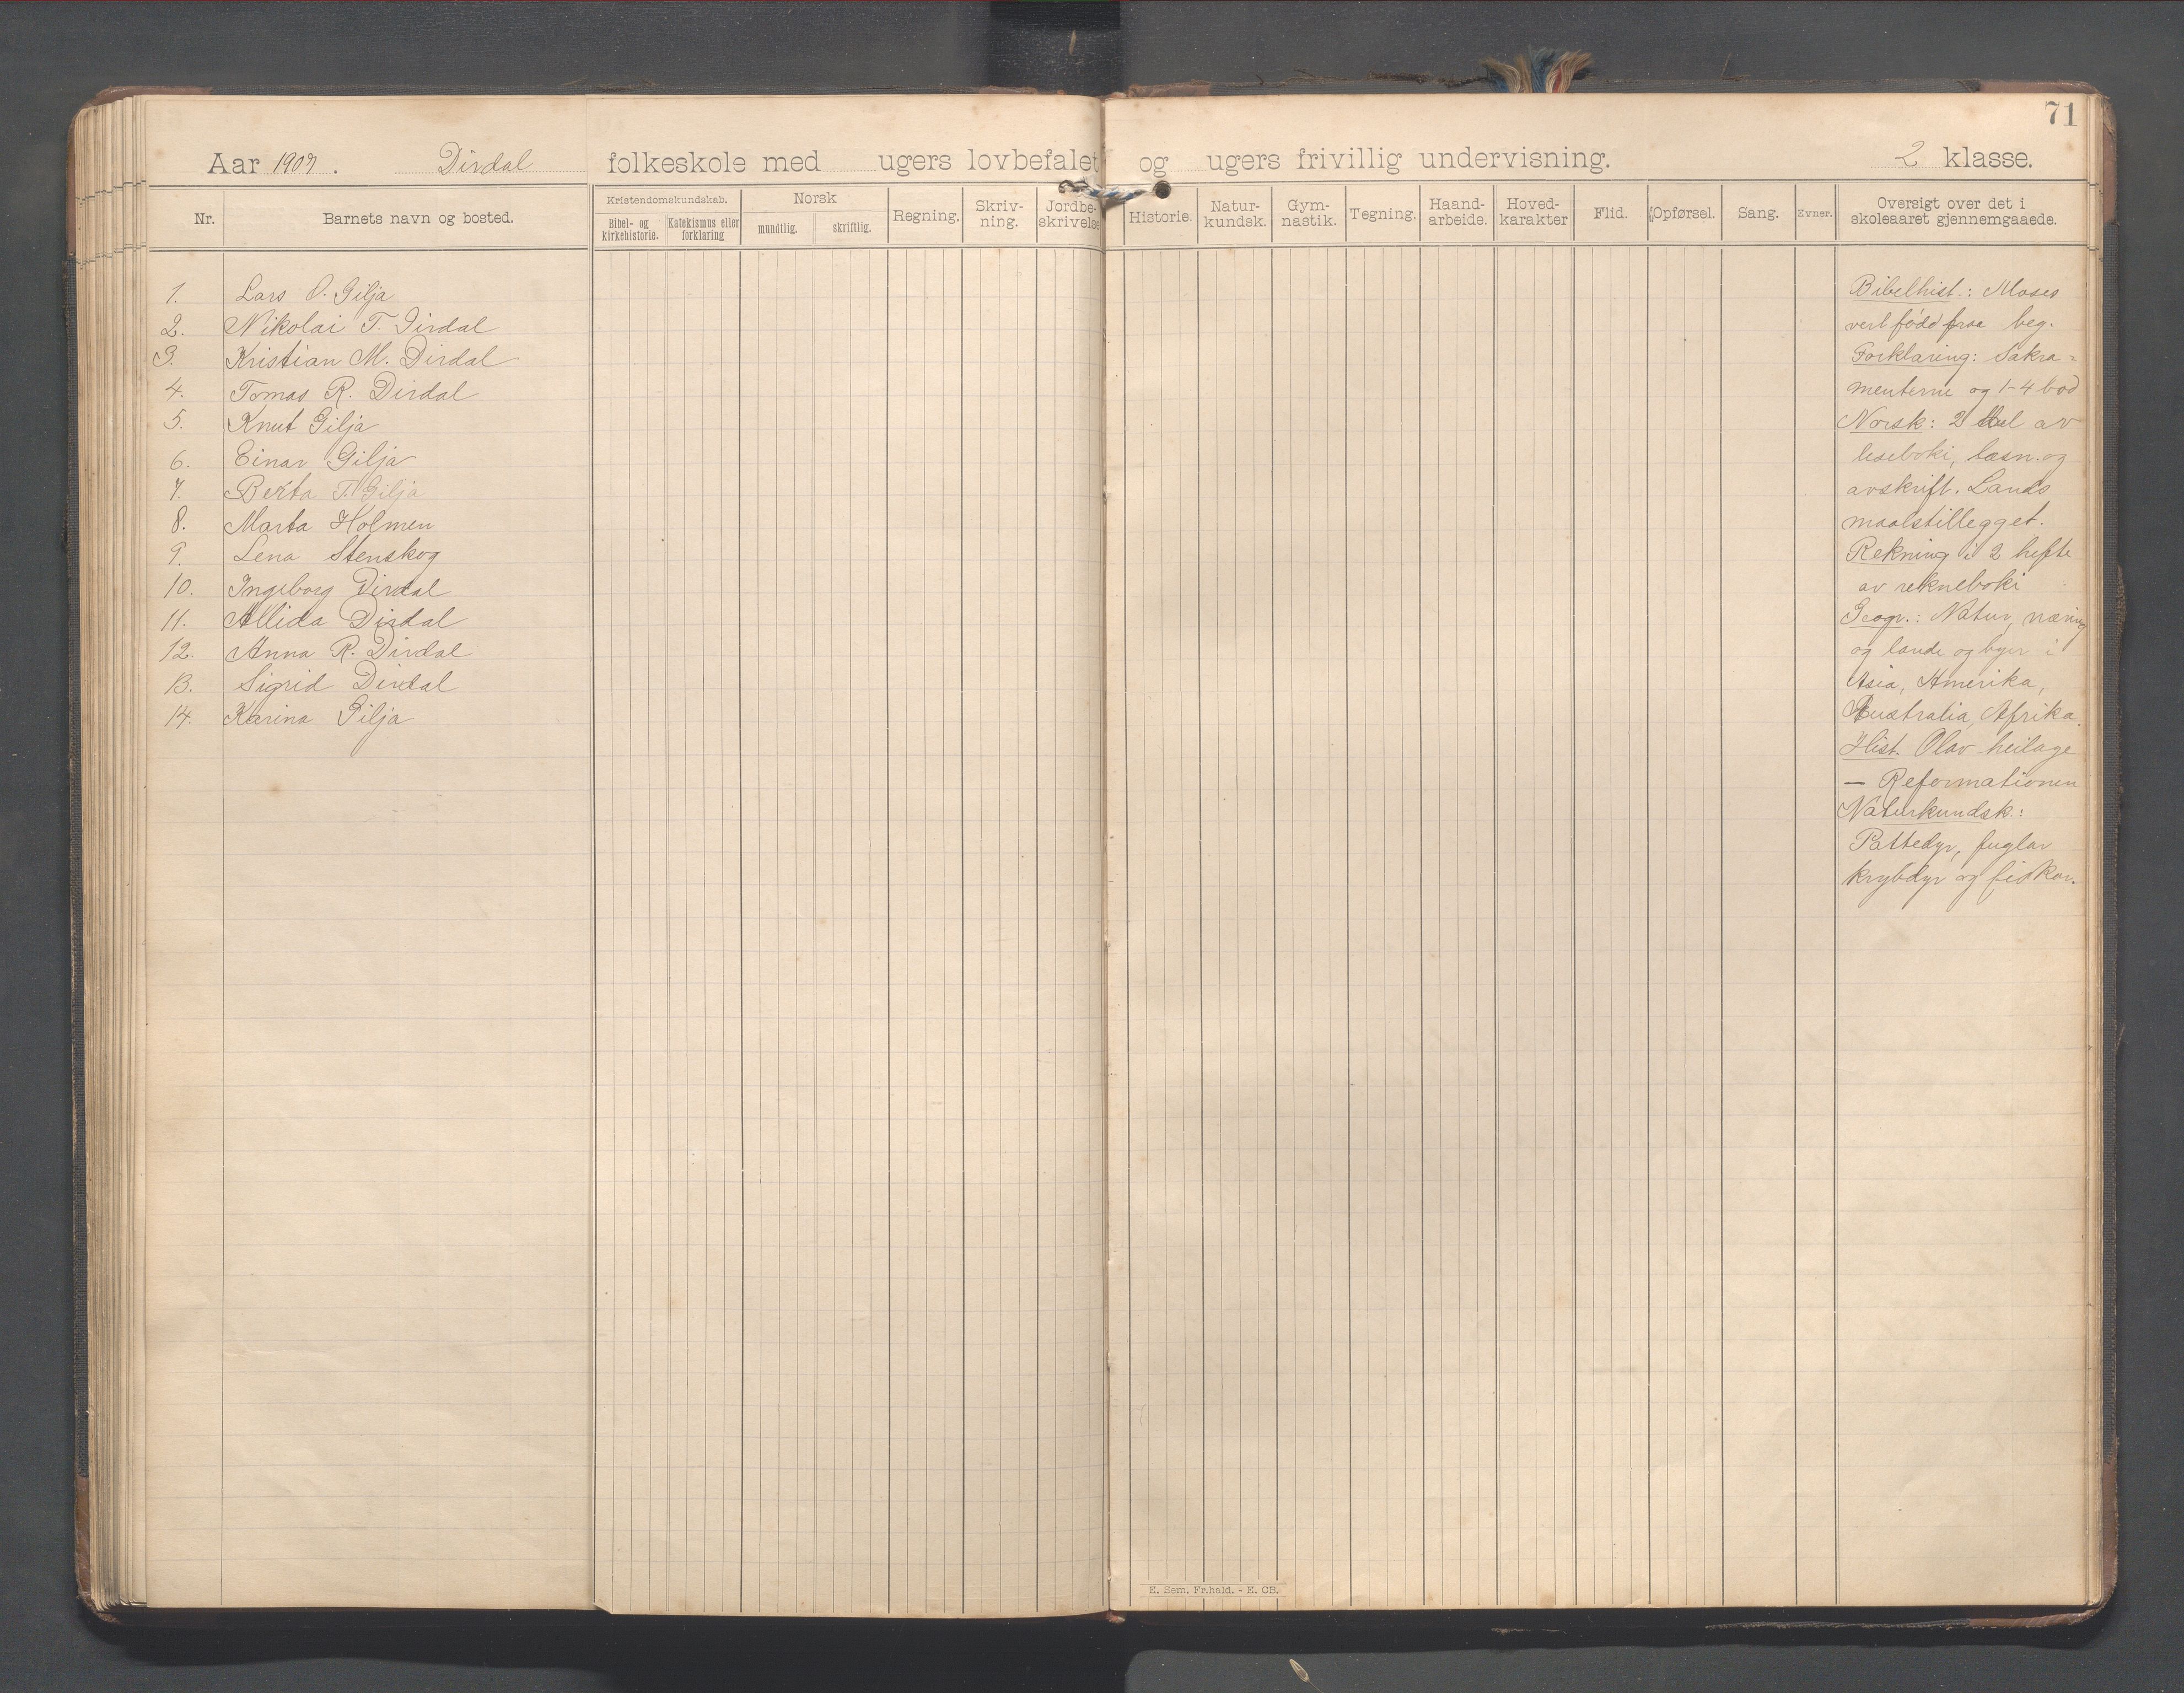 71
Aar 1907. Dirdal folkeskole med ugers lovbefalet og ugers frivillig undervisning. 2 klasse.
Nr.
Barnets navn og bosted.
Kristendomskundskab.
Bibel- og kirkehistorie.
Katekismus eller forklaring
Norsk
mundtlig.
skriftlig.
Regning.
Skriv-
ning.
Jordbe-
skrivelse
Historie.
Natur-
kundsk.
Gym-
nastik.
Tegning.
Haand-
arbeide.
Hoved-
karakter
Flid.
Opførsel.
Sang.
Evner.
Oversigt over det i
skoleaaret gjennemgaaede.
1. Lars O. Gilja
2. Nikolai T. Dirdal
3. Kristian M. Dirdal
4. Tomas R. Dirdal
5. Knut Gilja
6. Einar Gilja
7. Berta T. Gilja
8. Marta Holmen
9. Lena Stenskog
10. Ingeborg Dirdal
11. Allida Dirdal
12. Anna R. Dirdal
13. Sigrid Dirdal
14. Karina Gilja
Bibelhist.: Moses
vert född fraa beg.
Forklaring: Sakra-
menterne og 1-4 bod
Norsk: 2 del av
leseboki, læsn. og
avskrift. Lands
maalstillegget.
Rekning i 2 hefte
av rekneboki
Geogr.: Natur, næring
og lande og byer i
Asia, Amerika,
Australia, Afrika.
Hist. Olav heilage
— Reformationen
Naturkundsk.:
Pattedyr, fuglar
krybdyr og fiskar.
E. Sem, Fr.hald. - E. CB.